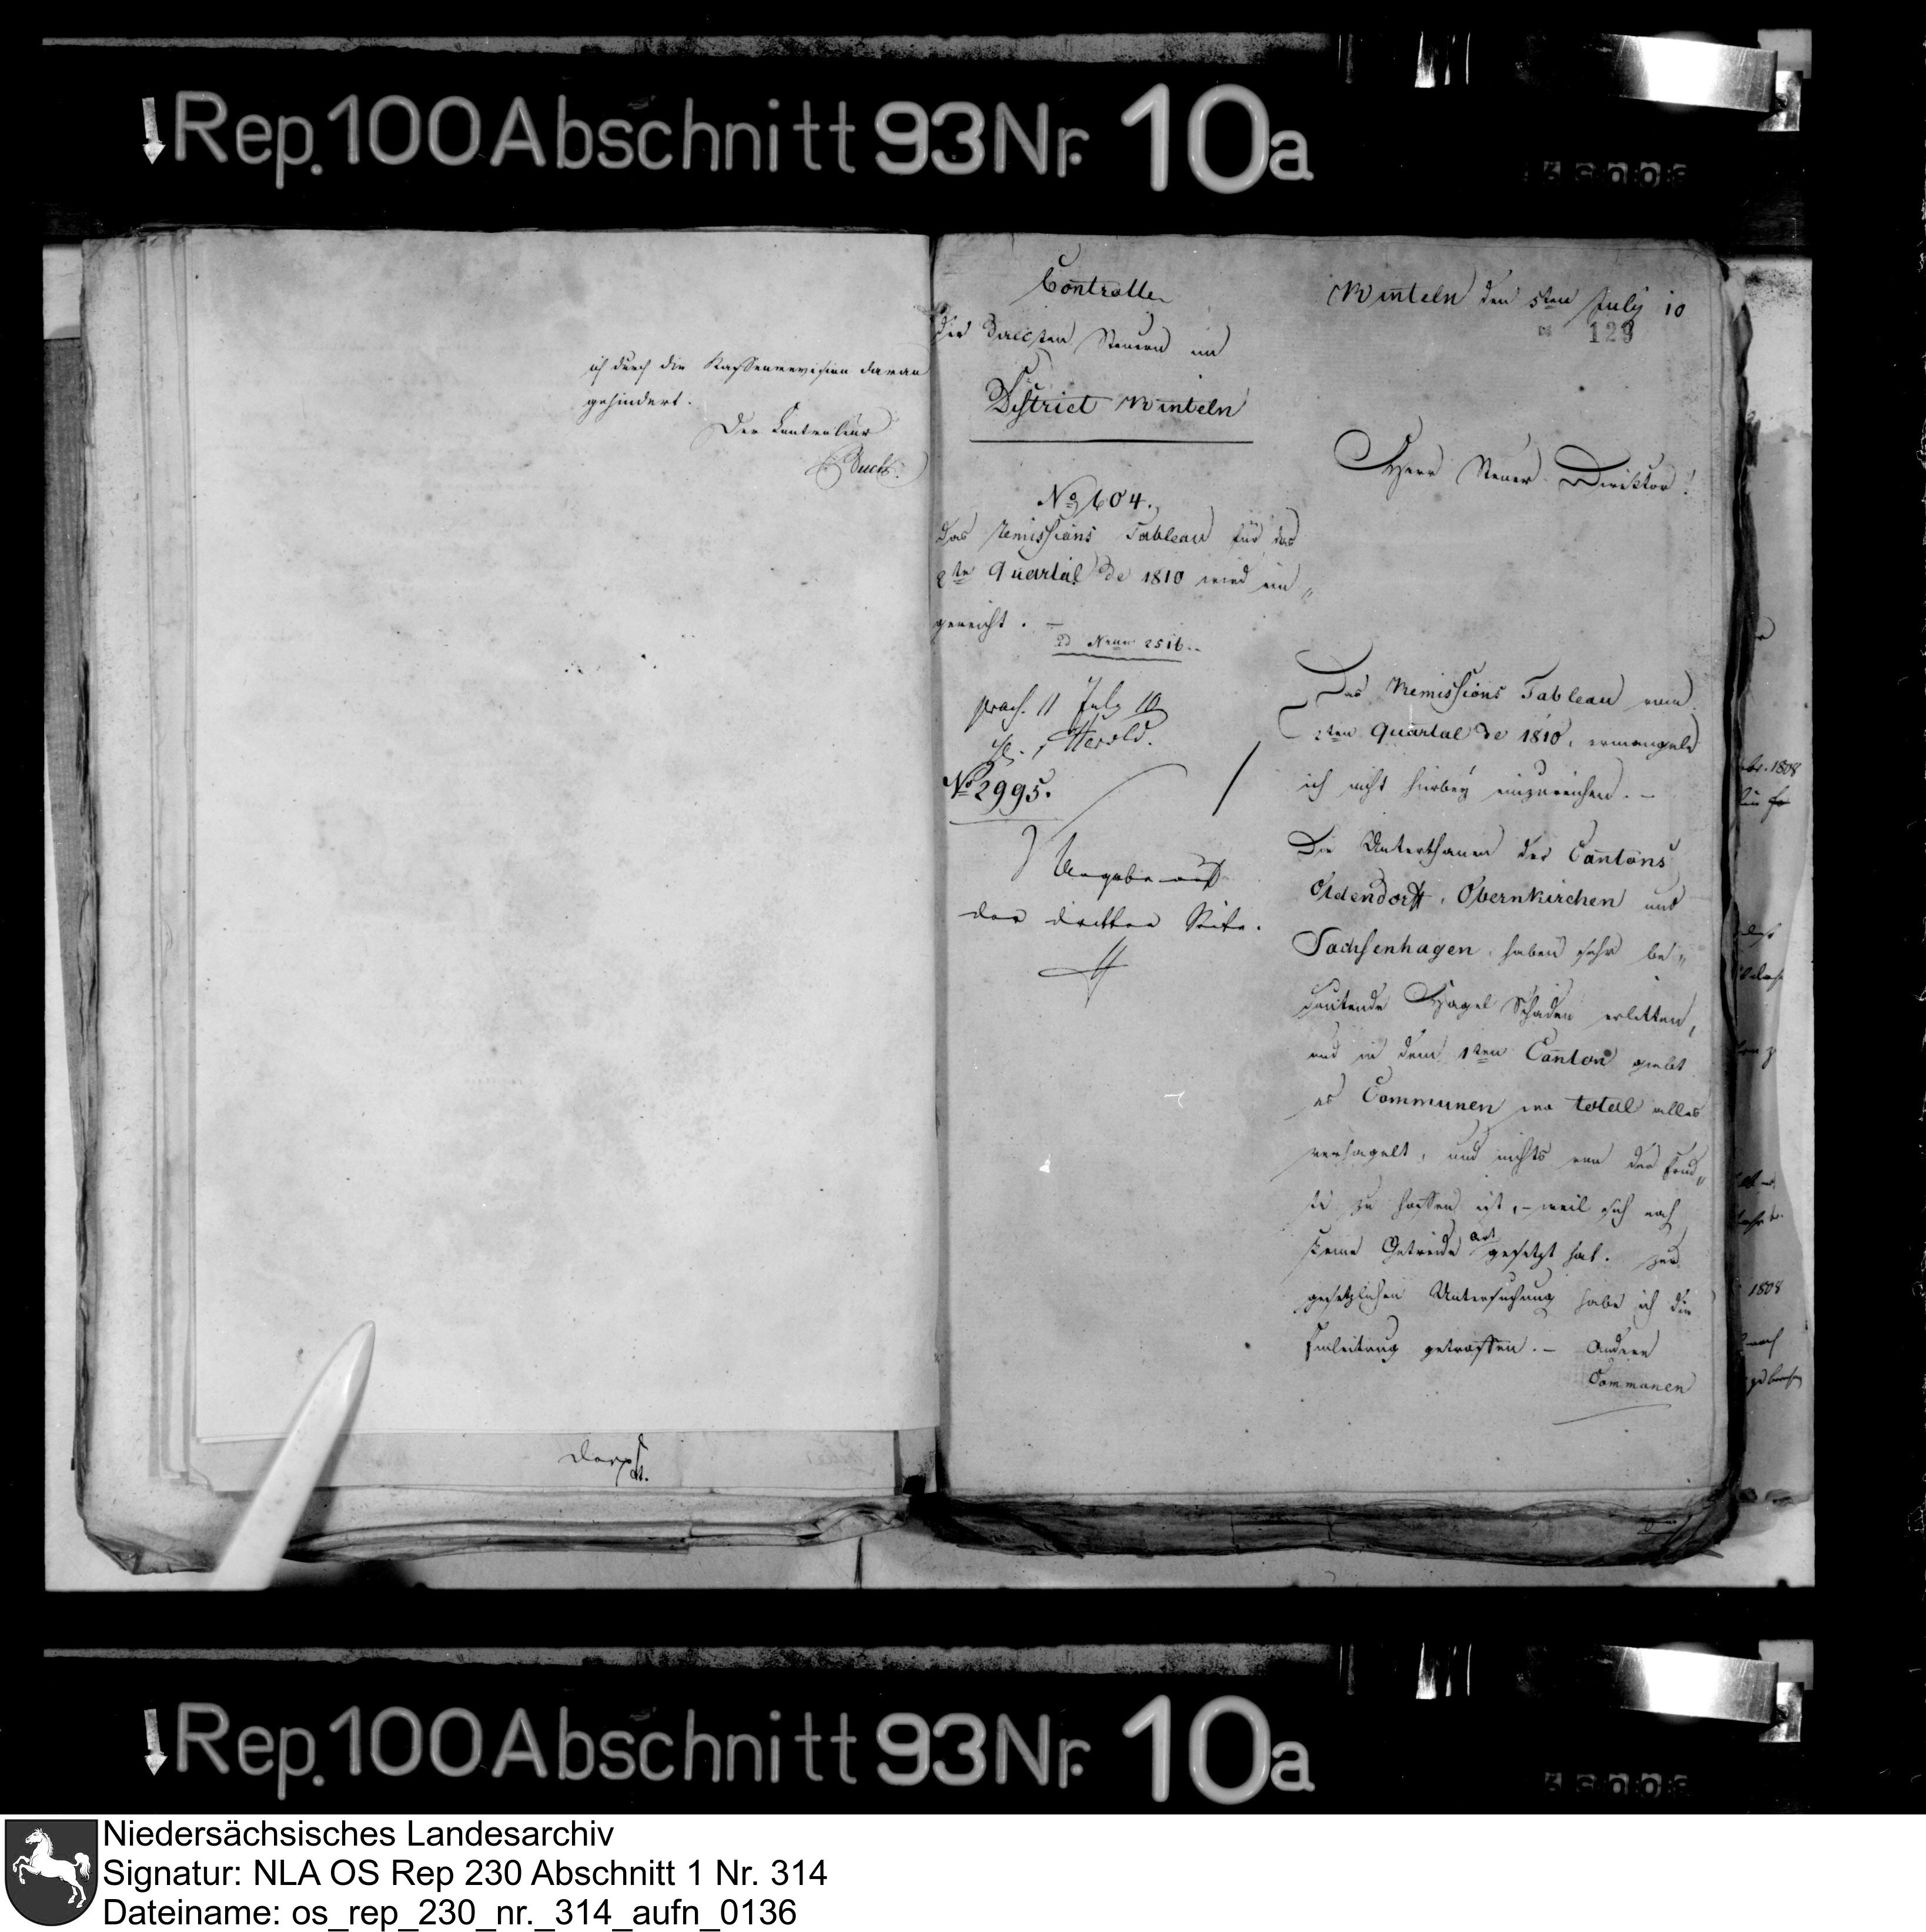 Rep. 100 Abschnitt 93 Nr. 10a
ich durch die Kassenrevision daran
gehindert.
Der Controleur
Controlle
der Directen Steuern im
District Rinteln
No 604.
Das Remissions Tableau für das
2te Quartal de 1810 wird ein„
gereicht. –
ad Num 2516.
praes. 11 July 10
Herold.
No 2995.
der dritten Seite.
Rinteln den 5ten July 10
129
Herr Steuer-Direktor!
Das Remissions Tableau vom
2ten Quartal de 1810, ermangele
ich nicht hierbey einzureichen. –
Die Unterthanen des Cantons
Oldendorff, Obernkirchen und
Sachsenhagen, haben sehr be„
deutende Hagel Schaden erlitten,
und in dem 1ten Canton giebt
es Communen wo total alles
verhagelt, und nichts von der Ernd„
te zu hoffen ist, – weil sich noch
keine Getreide art gesetzt hat. Zur
gesetzlichen Untersuchung habe ich die
Einleitung getroffen. – Andere
Communen
1808
1808
Rep. 100 Abschnitt 93 Nr. 10a
Niedersächsisches Landesarchiv
Signatur: NLA OS Rep 230 Abschnitt 1 Nr. 314
Dateiname: os_rep_230_nr._314_aufn_0136